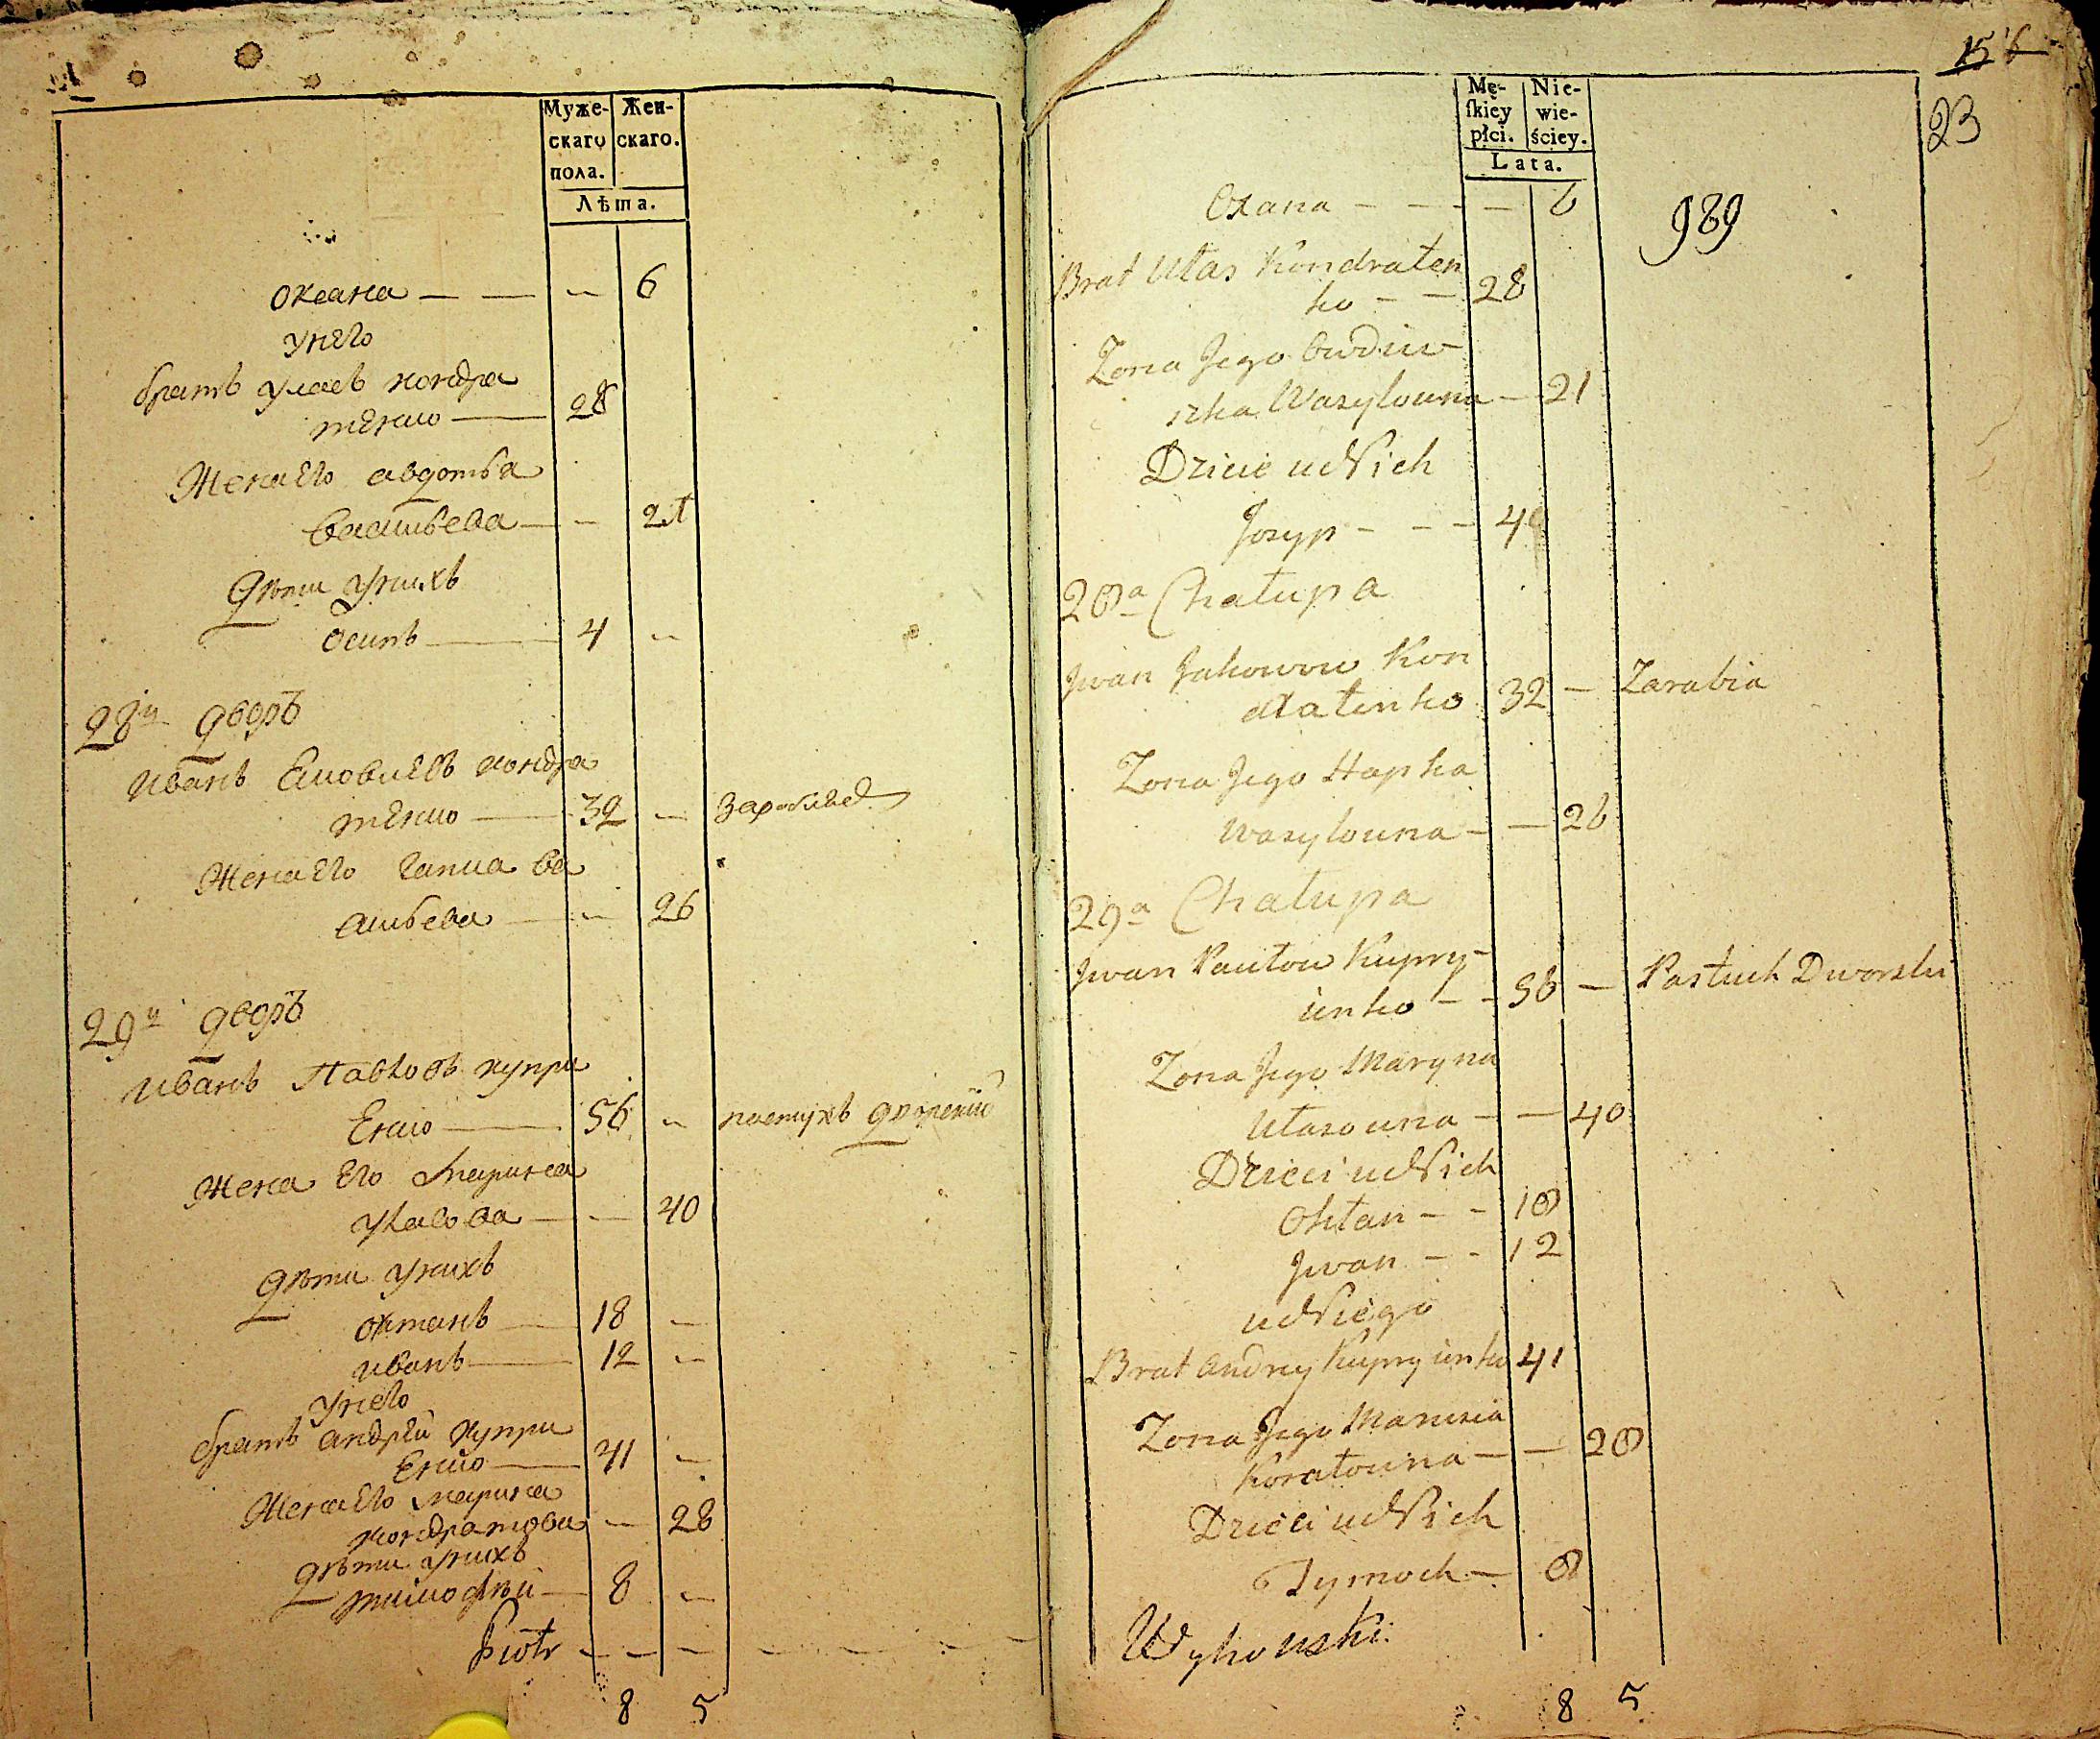 Муже-
скаго
пола.
Жен-
скаго.
Лѣта.
Оксана — — — 6
У него
братъ Уласъ Кондра
тенко — 28
Жена его Авдотья
Васильева — — 21
Дѣти у нихъ
Осипъ — 4 —
28й дворъ
Иванъ Яковлевъ Кондра
тенко — 32 —
Жена его Гапка Ва
сильева — — 26
29й дворъ
Иванъ Павловъ Купри
енко — 56 — пастухъ дворскій
Жена его Марина
Уласова — — 40
Дѣти у нихъ
Октанъ — 18 —
Иванъ — 12 —
У него
братъ Андрей Купри
енко — 41 —
Жена его Марина
Кондратова — 28
Дѣти у нихъ
Тимофѣй — 8 —
Piotr — — — — — — —
8 5
15
23
989
Mę-
ſkiey
płci.
Nie-
wie-
ściey.
Lata.
Oxana — — — — 6
Brat Ułas Kondraten
ko — — 28
Zona Jego Owdiu-
szka Wasylowna — 21
Dzicie u Nich
Josyp — — — 4
28a Chałupa
Jwan Jakowow Kon
dratenko 32 — Zarabia
Zona Jego Hapka
Wasylowna — — 26
29a Chałupa
Jwan Pawłow Kupry-
ienko — — 56 — Pastuch Dworski
Zona Jego Maryna
Ułasowna — — 40
Dzieci u Nich
Oktan — — 18
Jwan — — 12
u Niego
Brat Andrey Kupryienko 41
Zona Jego
— — 28
Dzieci u Nich
Tymoch — 8
Wyhowski.
8 5